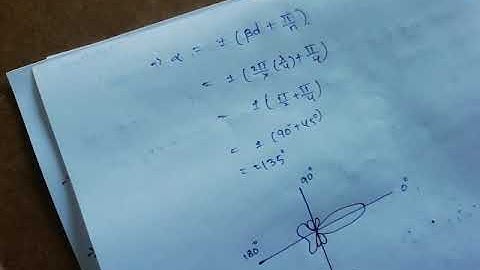 ⇒ α = ± (βd + π/n)
= ± (2π/λ (λ/4) + π/4)
= ± (π/2 + π/4)
= ± (90° + 45°)
= ±135°
90°
0°
180°